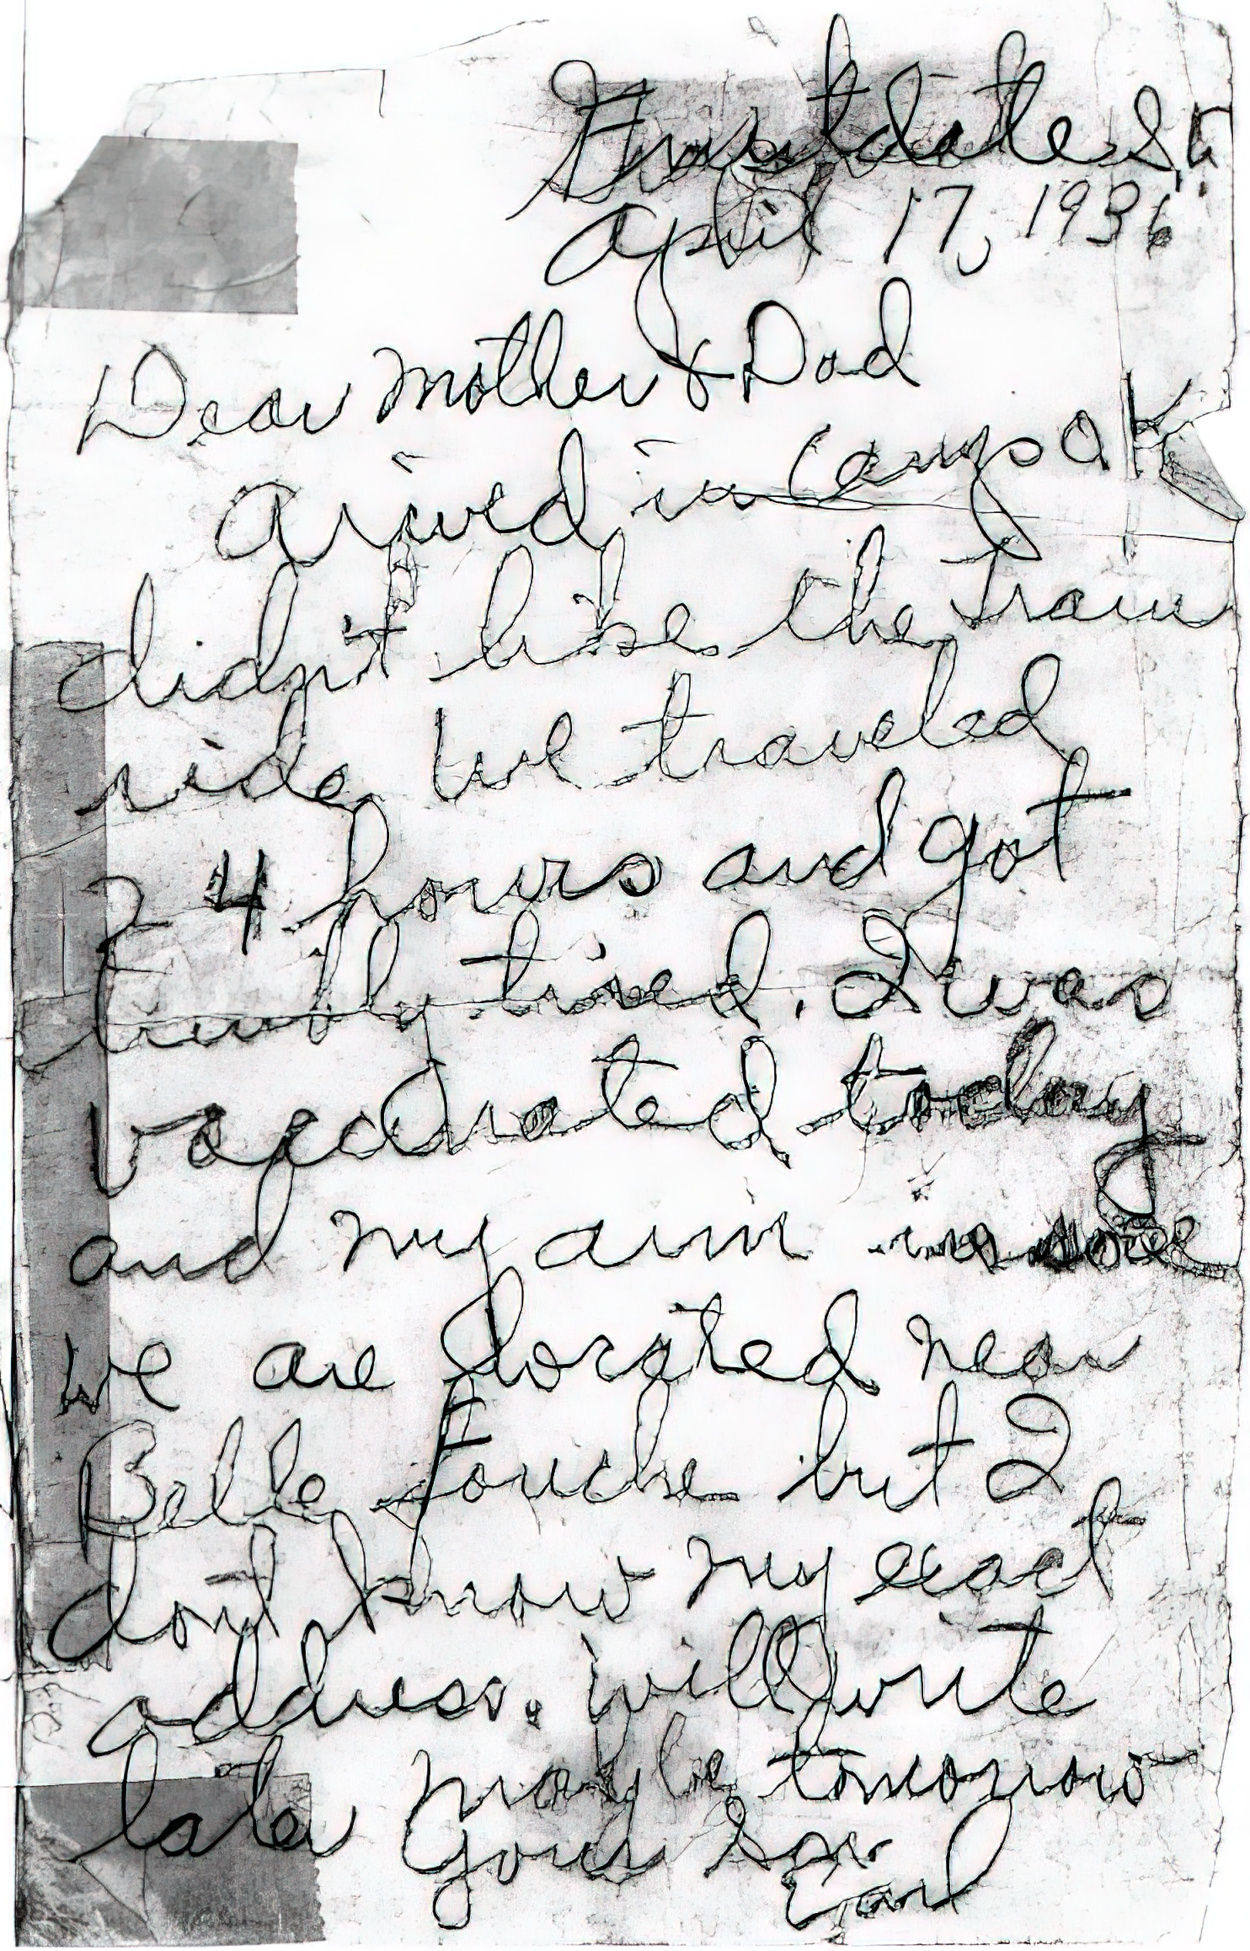 Fruitdale S.D.
April 17, 1936
Dear Mother & Dad
Arived in Camp OK
didn't like the train
ride we traveled
24 hours and got
tired. I was
vaccinated today
and my arm is sore
we are located near
Belle Fouche but I
don't know my exact
address. will write
later maybe tomorrow
Your Son
Earl